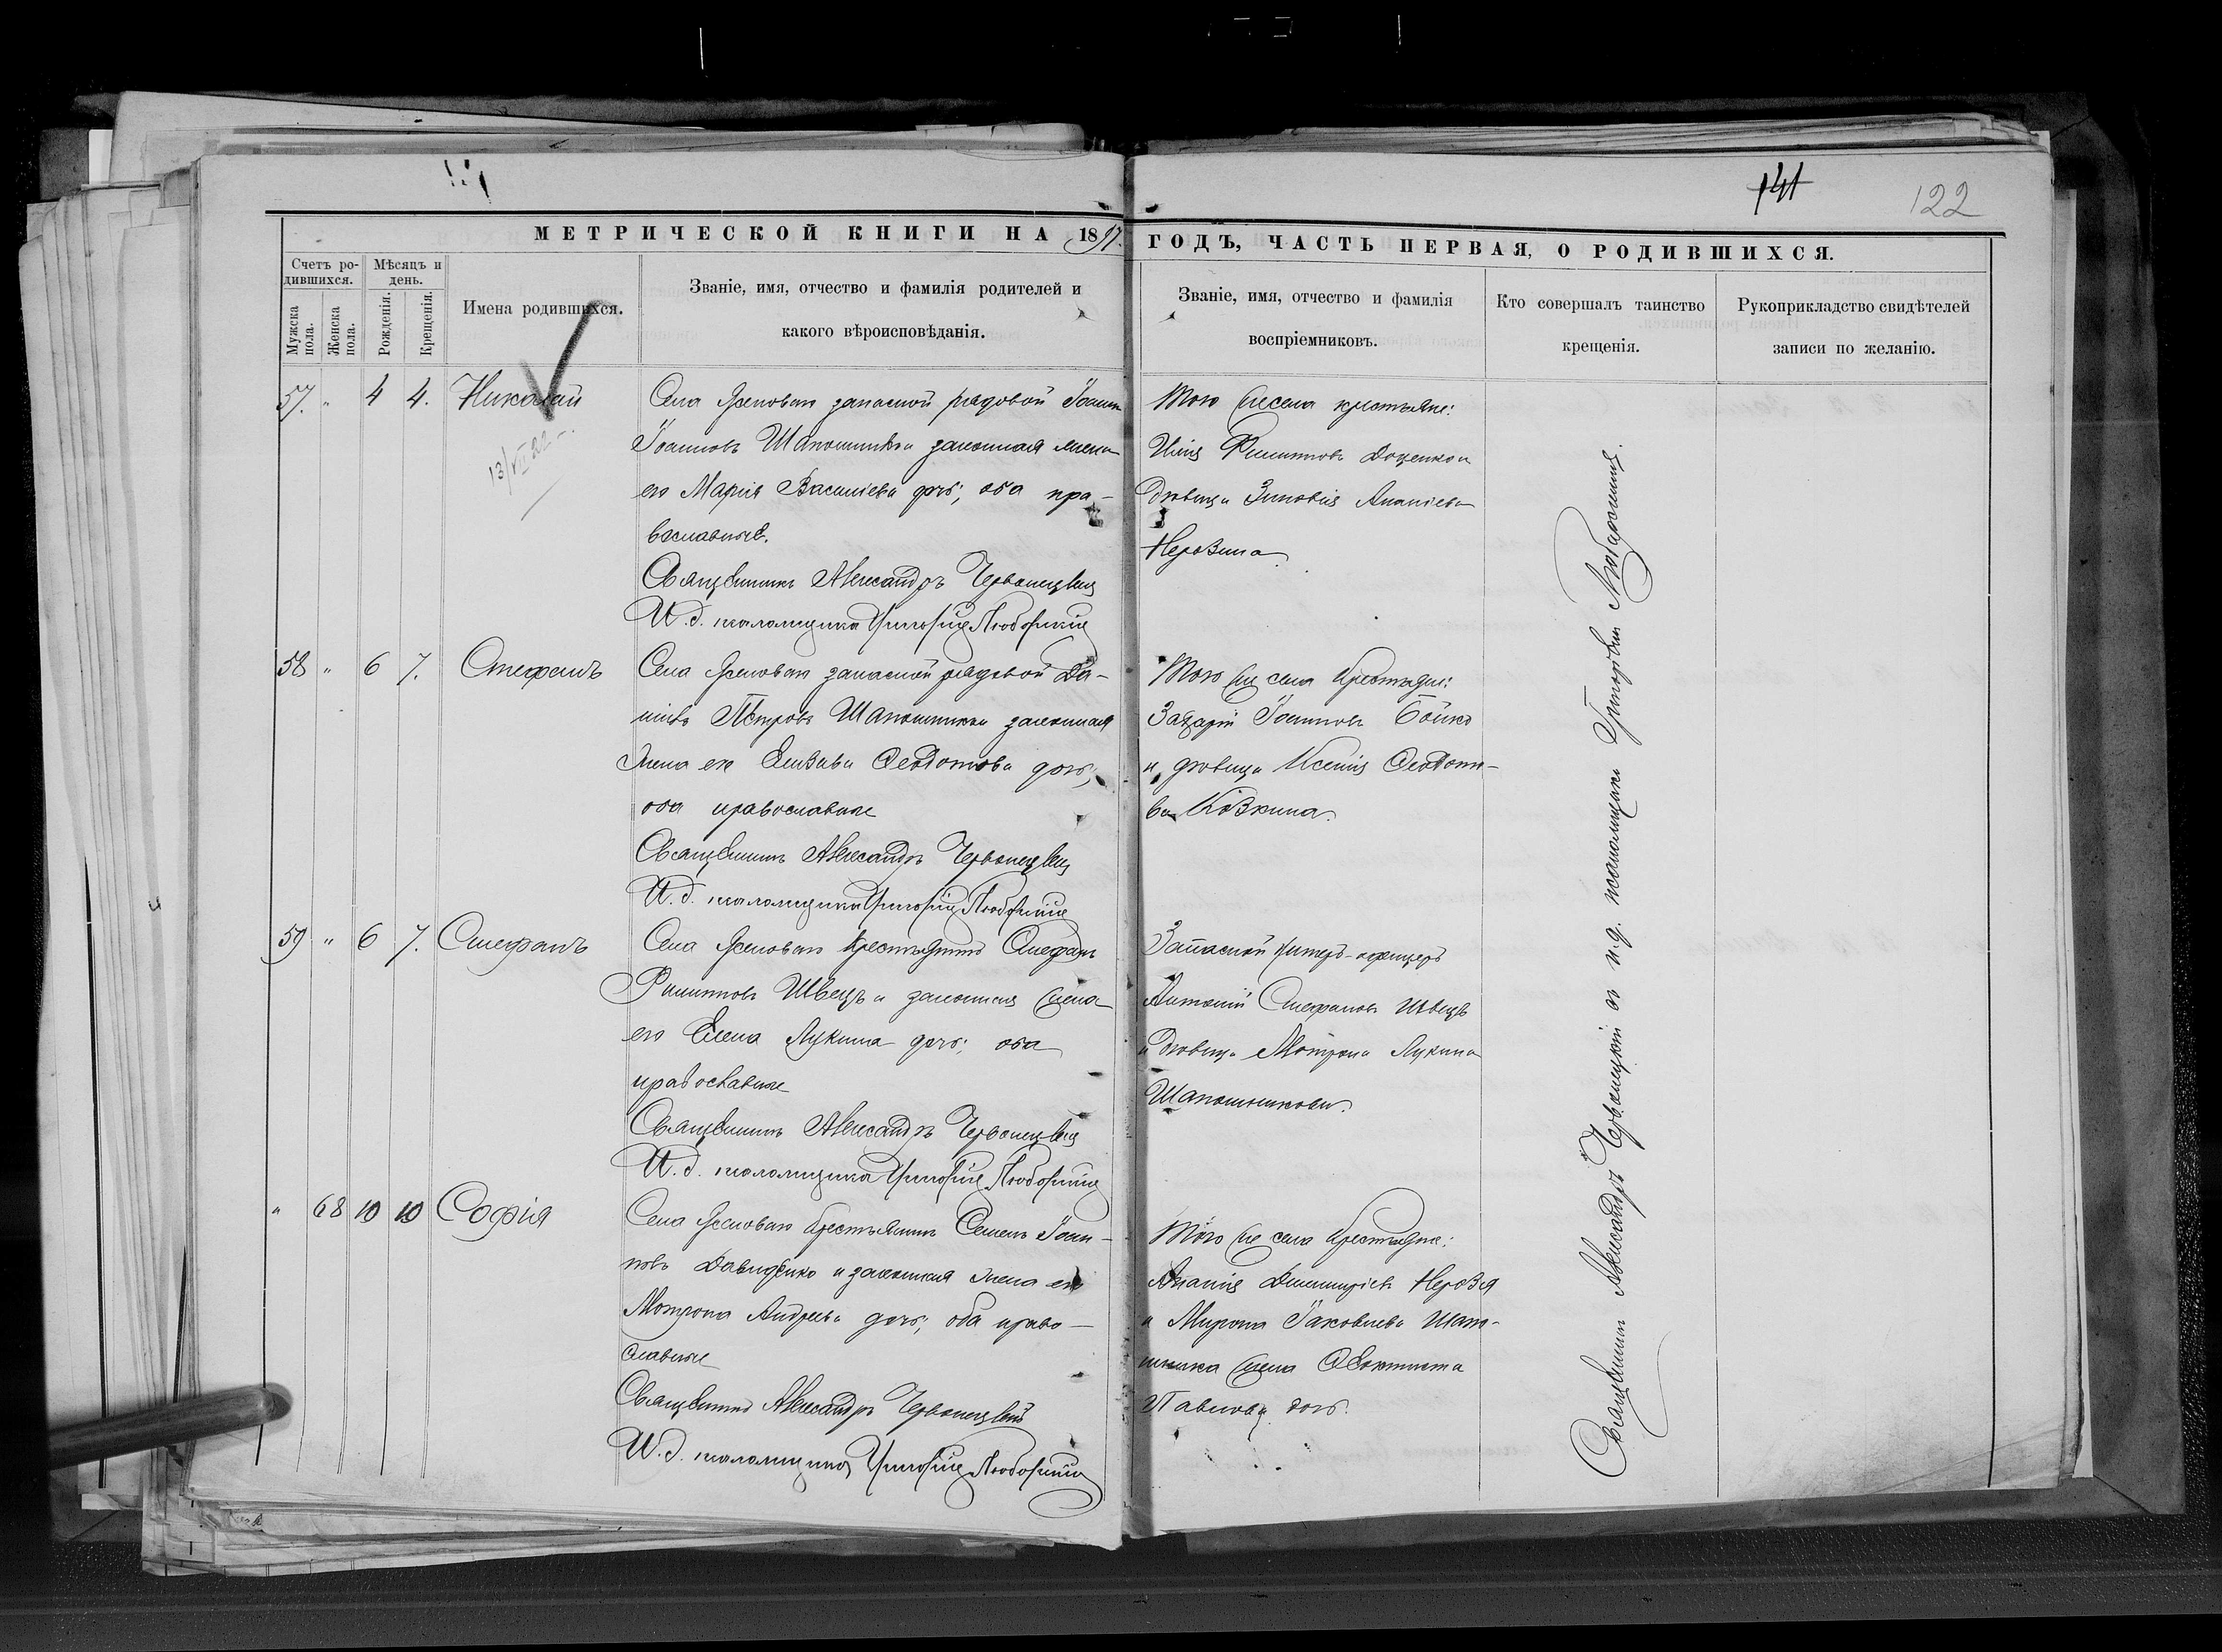 141
122
МЕТРИЧЕСКОЙ КНИГИ НА 1897. ГОДЪ, ЧАСТЬ ПЕРВАЯ, О РОДИВШИХСЯ.
Счетъ ро-
дившихся.
Мужска
пола.
Женска
пола.
Мѣсяцъ и
день.
Рожденія.
Крещенія.
Имена родившихся.
Званіе, имя, отчество и фамилія родителей и
какого вѣроисповѣданія.
Званіе, имя, отчество и фамилія
воспріемниковъ.
Кто совершалъ таинство
крещенія.
Рукоприкладство свидѣтелей
записи по желанію.
57. " 4 4. Николай
Села запасной рядовой Іоаннъ
Іоанновъ Шапошникъ и законная жена
его Марія Василіева дочь; оба пра-
вославные.
Священникъ Александръ Червонецкій
И.д. псаломщика Григорій
Того же села крестьяне:
Илія Филипповъ Доценко и
дѣвица Зиновія Ананіева
Нерозина.
58 " 6 7. Стефанъ
Села запасной рядовой Да-
ніилъ Петровъ Шапошникъ и законная
жена его Елизавета Ѳеодотова дочь;
оба православные
Священникъ Александръ Червонецкій
И.д. псаломщика Григорій
Того же села крестьяне:
Захарій Іоанновъ Бойко
и дѣвица Ксенія Ѳеодото-
ва Козкина.
59 " 6 7. Стефанъ
Села крестьянинъ Стефанъ
Филипповъ Швецъ и законная жена
его Елена Лукина дочь; оба
православные
Священникъ Александръ Червонецкій
И.д. псаломщика Григорій
Запасной унтеръ-офицеръ
Антоній Стефановъ Швецъ
и дѣвица Мотрона Лукина
Шапошникова.
" 68 10 10 Софія
Села крестьянинъ Семенъ Іоан-
новъ Давиденко и законная жена его
Мотрона Андреева дочь; оба право-
славные
Священникъ Александръ Червонецкій
И.д. псаломщика Григорій
Того же села крестьяне:
Ананія Димитріевъ Нерозя
и Мирона Іаковлева Шапо-
шника жена Ѳеоктиста
Павлова дочь.
Священникъ Александръ Червонецкій съ и.д. псаломщика Григоріемъ